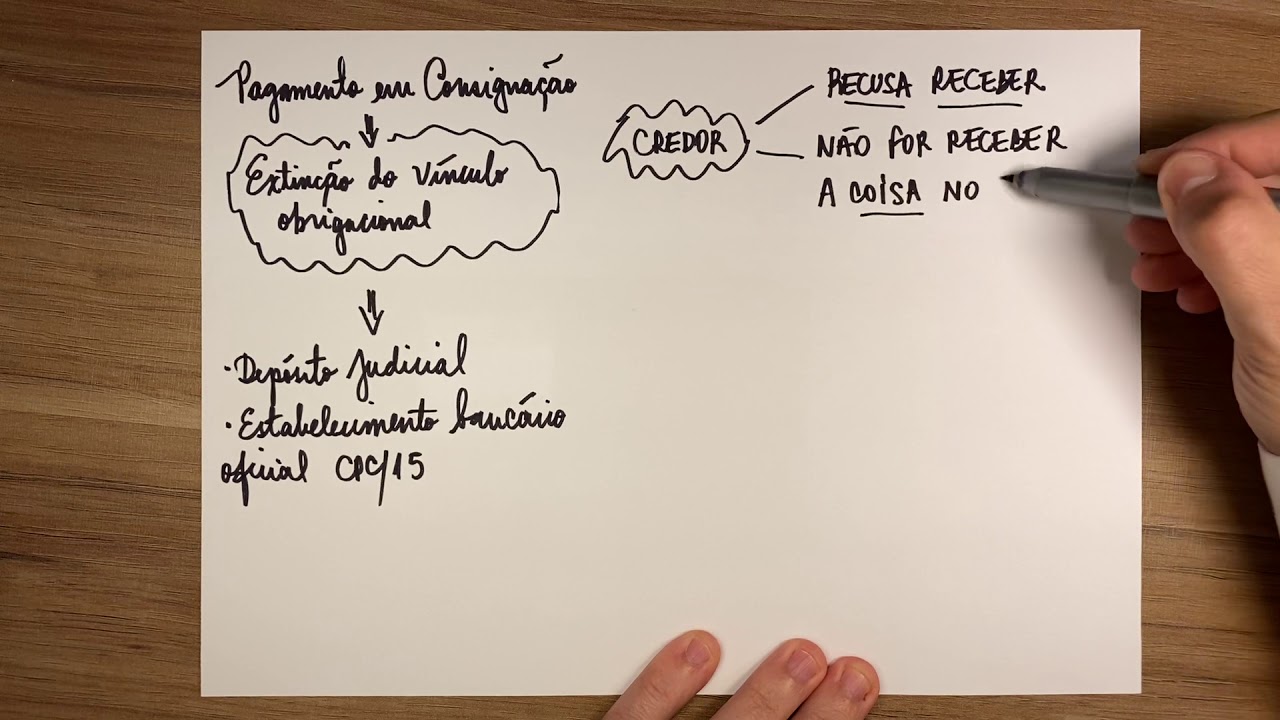 Pagamento em Consignação
Extinção do vínculo
obrigacional
• Depósito Judicial
• Estabelecimento bancário
oficial CPC/15
CREDOR
RECUSA RECEBER
NÃO FOR RECEBER
A COISA NO